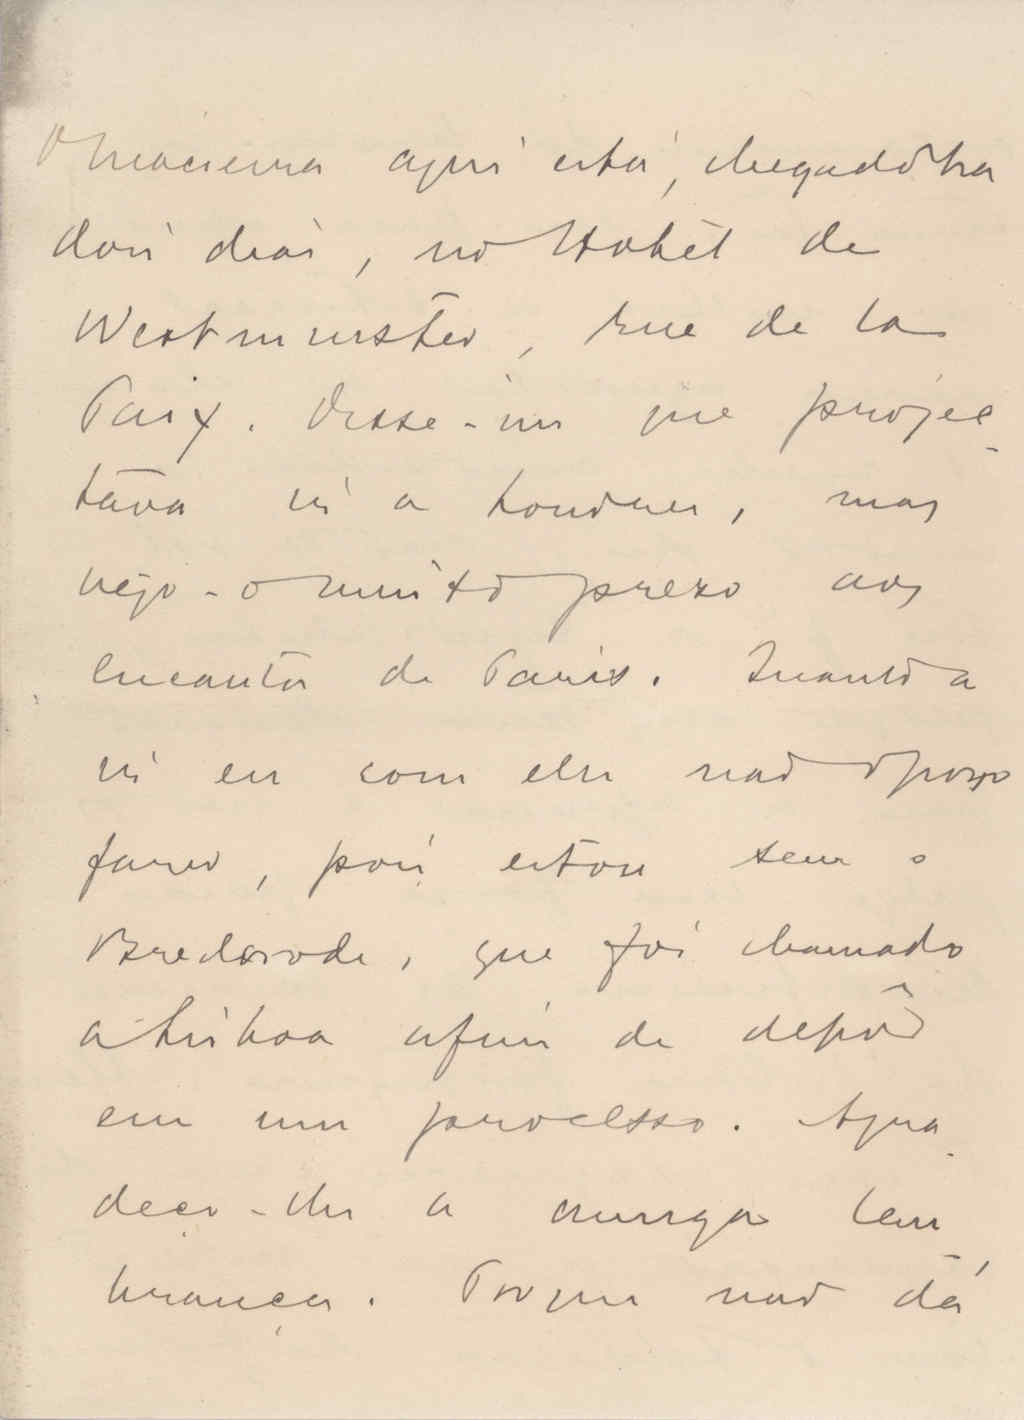 O Macieira aqui está, chegado ha
dois dias, no Hotél de
Westminster, rue de la
Paix. Disse-me que projec-
táva ir a Londres, mas
vejo-o muito prezo aos
encantos de Paris. Quanto a
ir eu com elle não o posso
fazer, pois estou sem o
Brederode, que foi chamado
a Lisboa afim de depôr
em um processo. Agra-
deço-lhe a amiga lem-
brança. Porque não dá